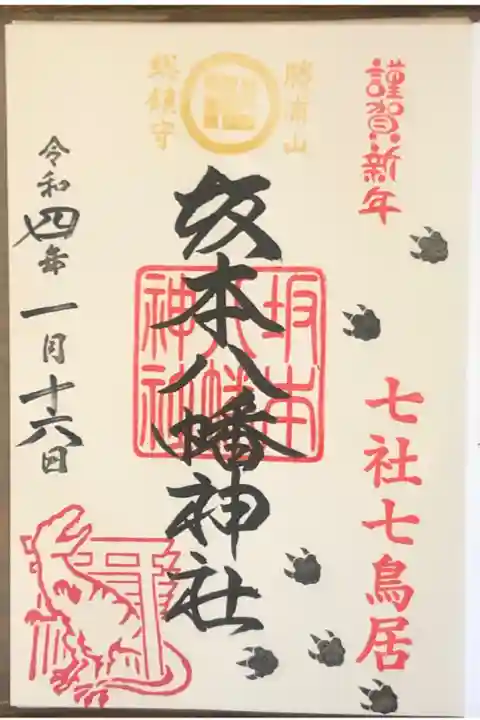 謹賀新年
七社七鳥居
勝南山
総鎮守
坂本八幡神社
坂本
八幡
神社
令和四年一月十六日